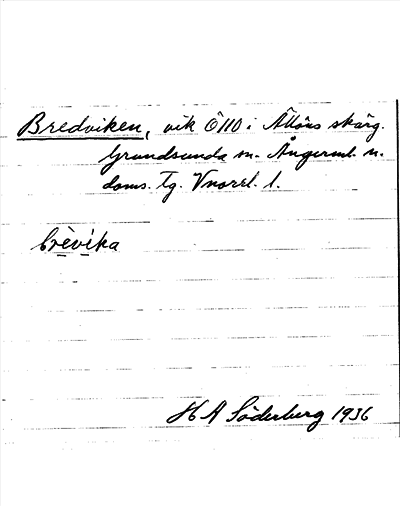 Bredviken, vik Ö110 i Ällöns skärg.
Grundsunda sn. Ångerml. n.
doms. Tg. Vnorrl. l.
brèvika
H A Söderberg 1936